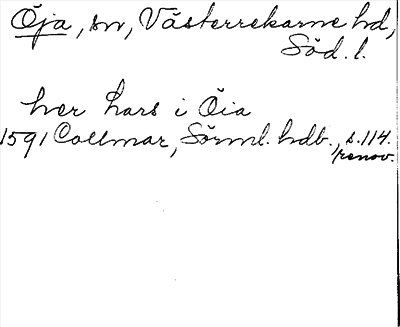 Öja, sn, Västerrekarne hd,
Söd. l.
hver Lars i Öia
1591 Collmar, Sörml. hdb., s. 114.
renov.